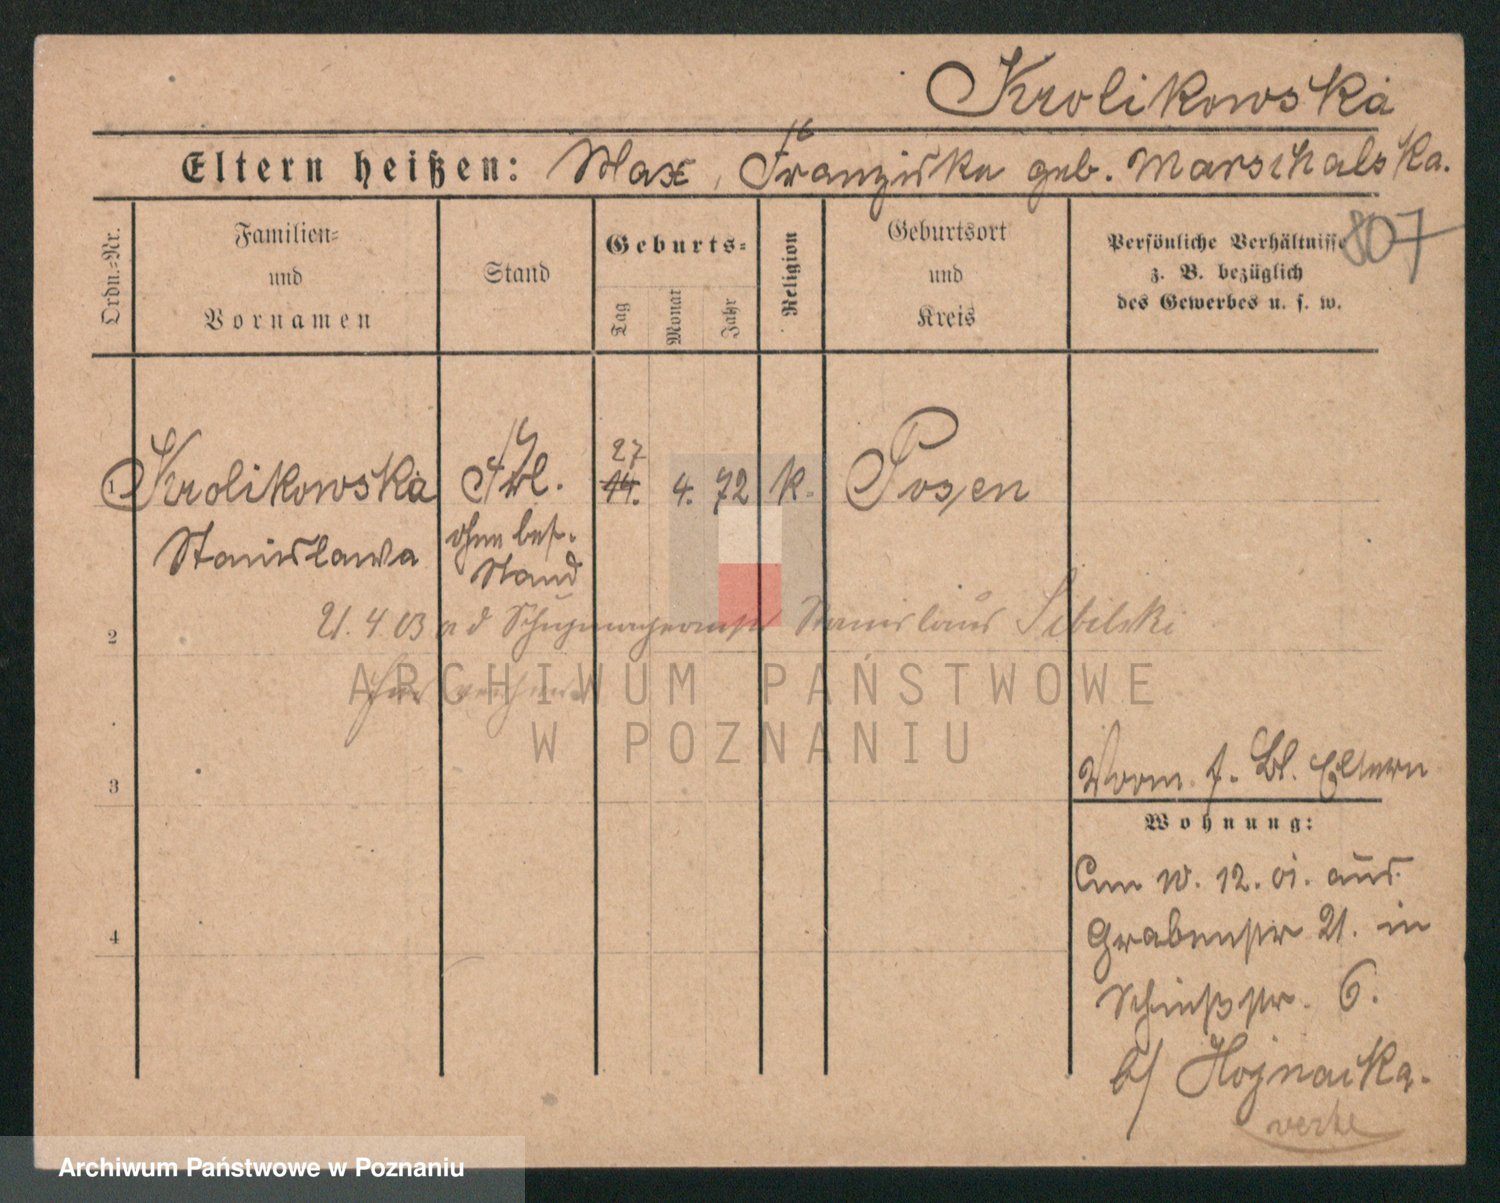 Krolikowska
Eltern heißen: Max, Franziska geb. Marschalska.
807
Ordn.-Nr.
Familien-
und
Vornamen
Stand
Geburts-
Tag
Monat
Jahr
Religion
Geburtsort
und
Kreis
Persönliche Verhältnisse
z. B. bezüglich
des Gewerbes u. s. w.
27
1 Krolikowska Frl. 14. 4. 72 k. Posen
Stanislawa
ohne bes.
Stand
2
21. 4. 03 Schuhmacher Stanislaus Sibilski
verh
ARCHIWUM PAŃSTWOWE
W POZNANIU
3
Vorm. f. Bl. Eltern
Wohnung:
Am 10. 12. 01. aus
Grabenstr 21. in
Schießstr. 6.
b/ Hojnacka.
verhe
4
Archiwum Państwowe w Poznaniu